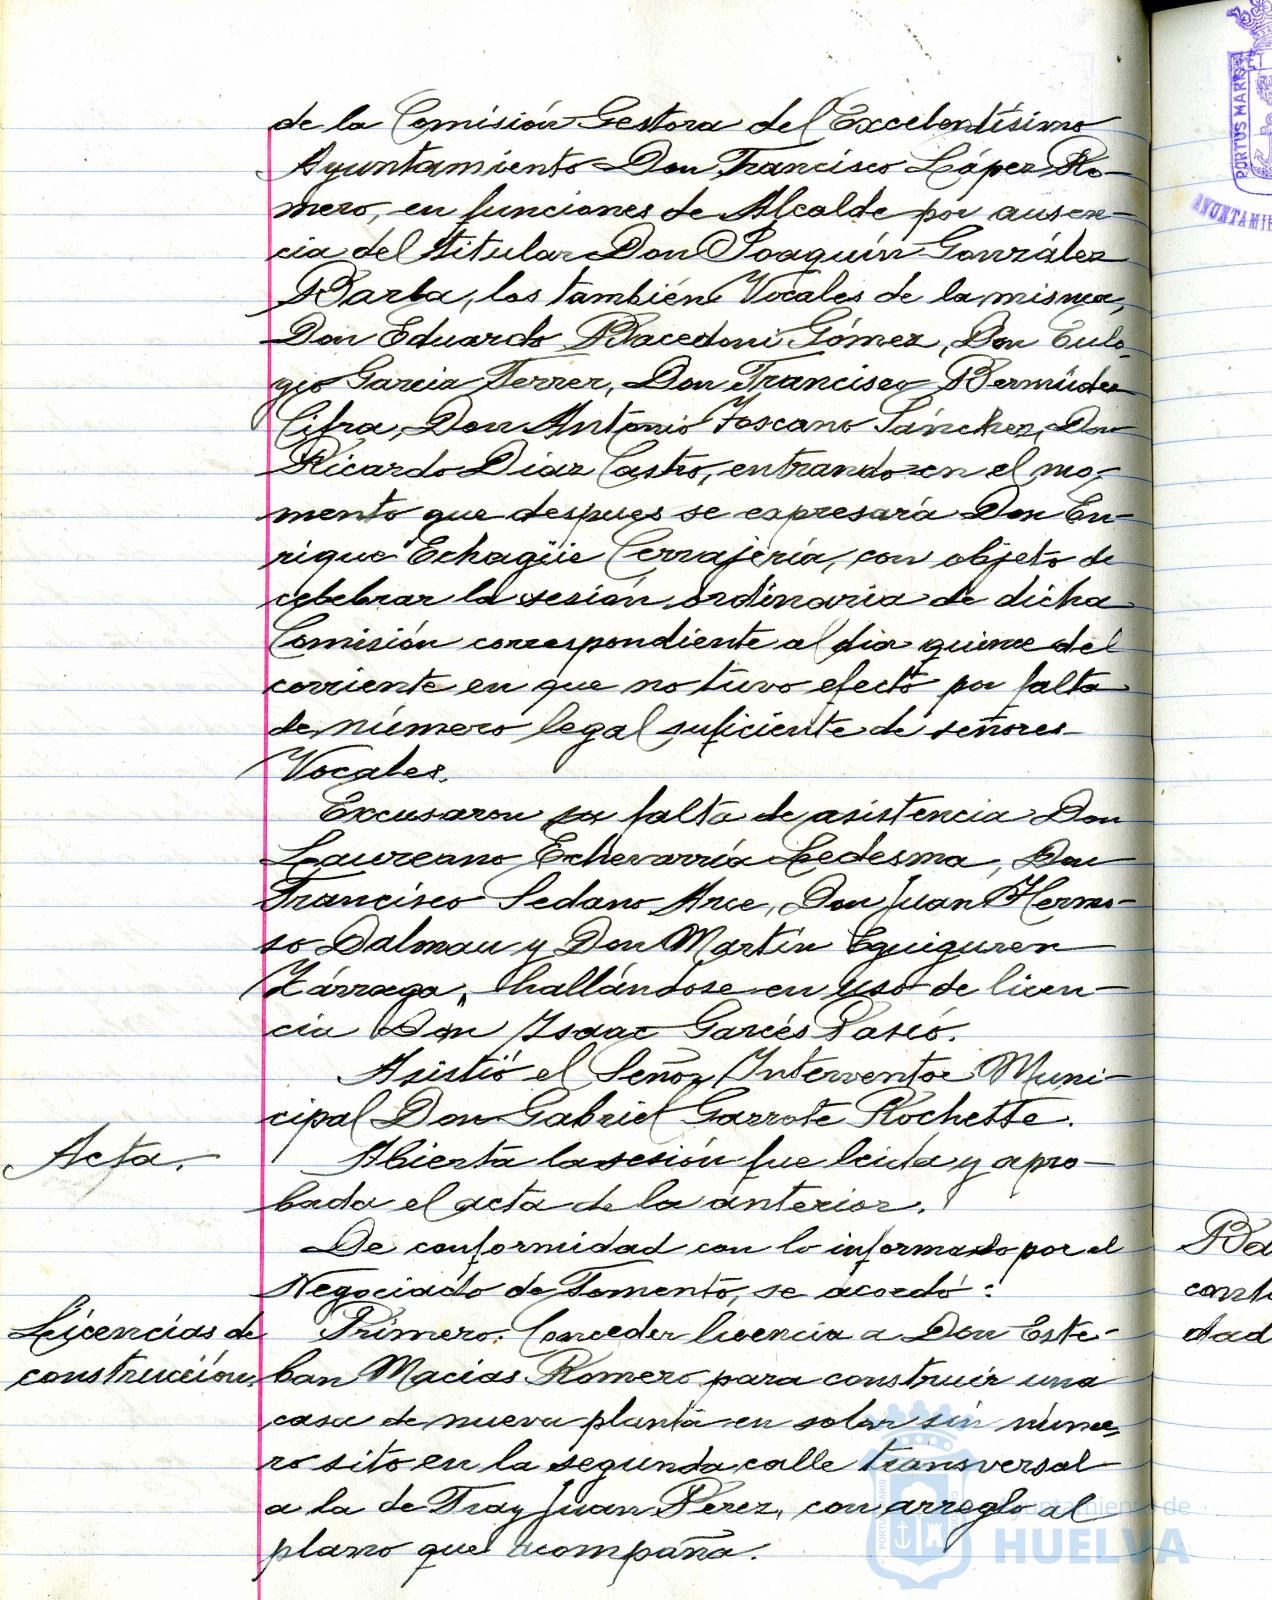 de la Comisión Gestora del Excelentísimo
Ayuntamiento Don Francisco López Ro-
mero, en funciones de Alcalde por ausen-
cia del titular Don Joaquín González
Barba, los también Vocales de la misma,
Don Eduardo Bacedoni Gómez, Don Eulo-
gio García Ferrer, Don Francisco Bermúdez
Cifra, Don Antonio Toscano Sánchez, Don
Ricardo Díaz Castro, entrando en el mo-
mento que despues se expresará Don En-
rique Echagüe Cerrajería, con objeto de
cebebrar la sesión ordinaria de dicha
Comisión correspondiente al dia quince del
corriente en que no tuvo efecto por falta
de número legal suficiente de señores
Vocales.
Excusaron su falta de asistencia Don
Laureano Echevarría Ledesma, Don
Francisco Sedano Arce, Don Juan Hermo-
so Dalmau y Don Martín Eguiguren
Zárraga, hallándose en uso de licen-
cia Don Isaac Garcés Pasió.
Asistió el Señor Interventor Muni-
cipal Don Gabriel Garrote Rochette.
Acta.
Abierta la sesión fue leida y apro-
bada el acta de la anterior.
De conformidad con lo informado por el
Negociado de Fomento, se acordó:
Licencias de
construcción.
Primero. Conceder licencia a Don Este-
ban Macias Romero para construir una
casa de nueva planta en solar sin núme-
ro sito en la segunda calle transversal
a la de Fray Juan Pérez, con arreglo al
plano que acompaña.
PORTUS MARIS
Ba
conti
dad
Ayuntamiento de
HUELVA